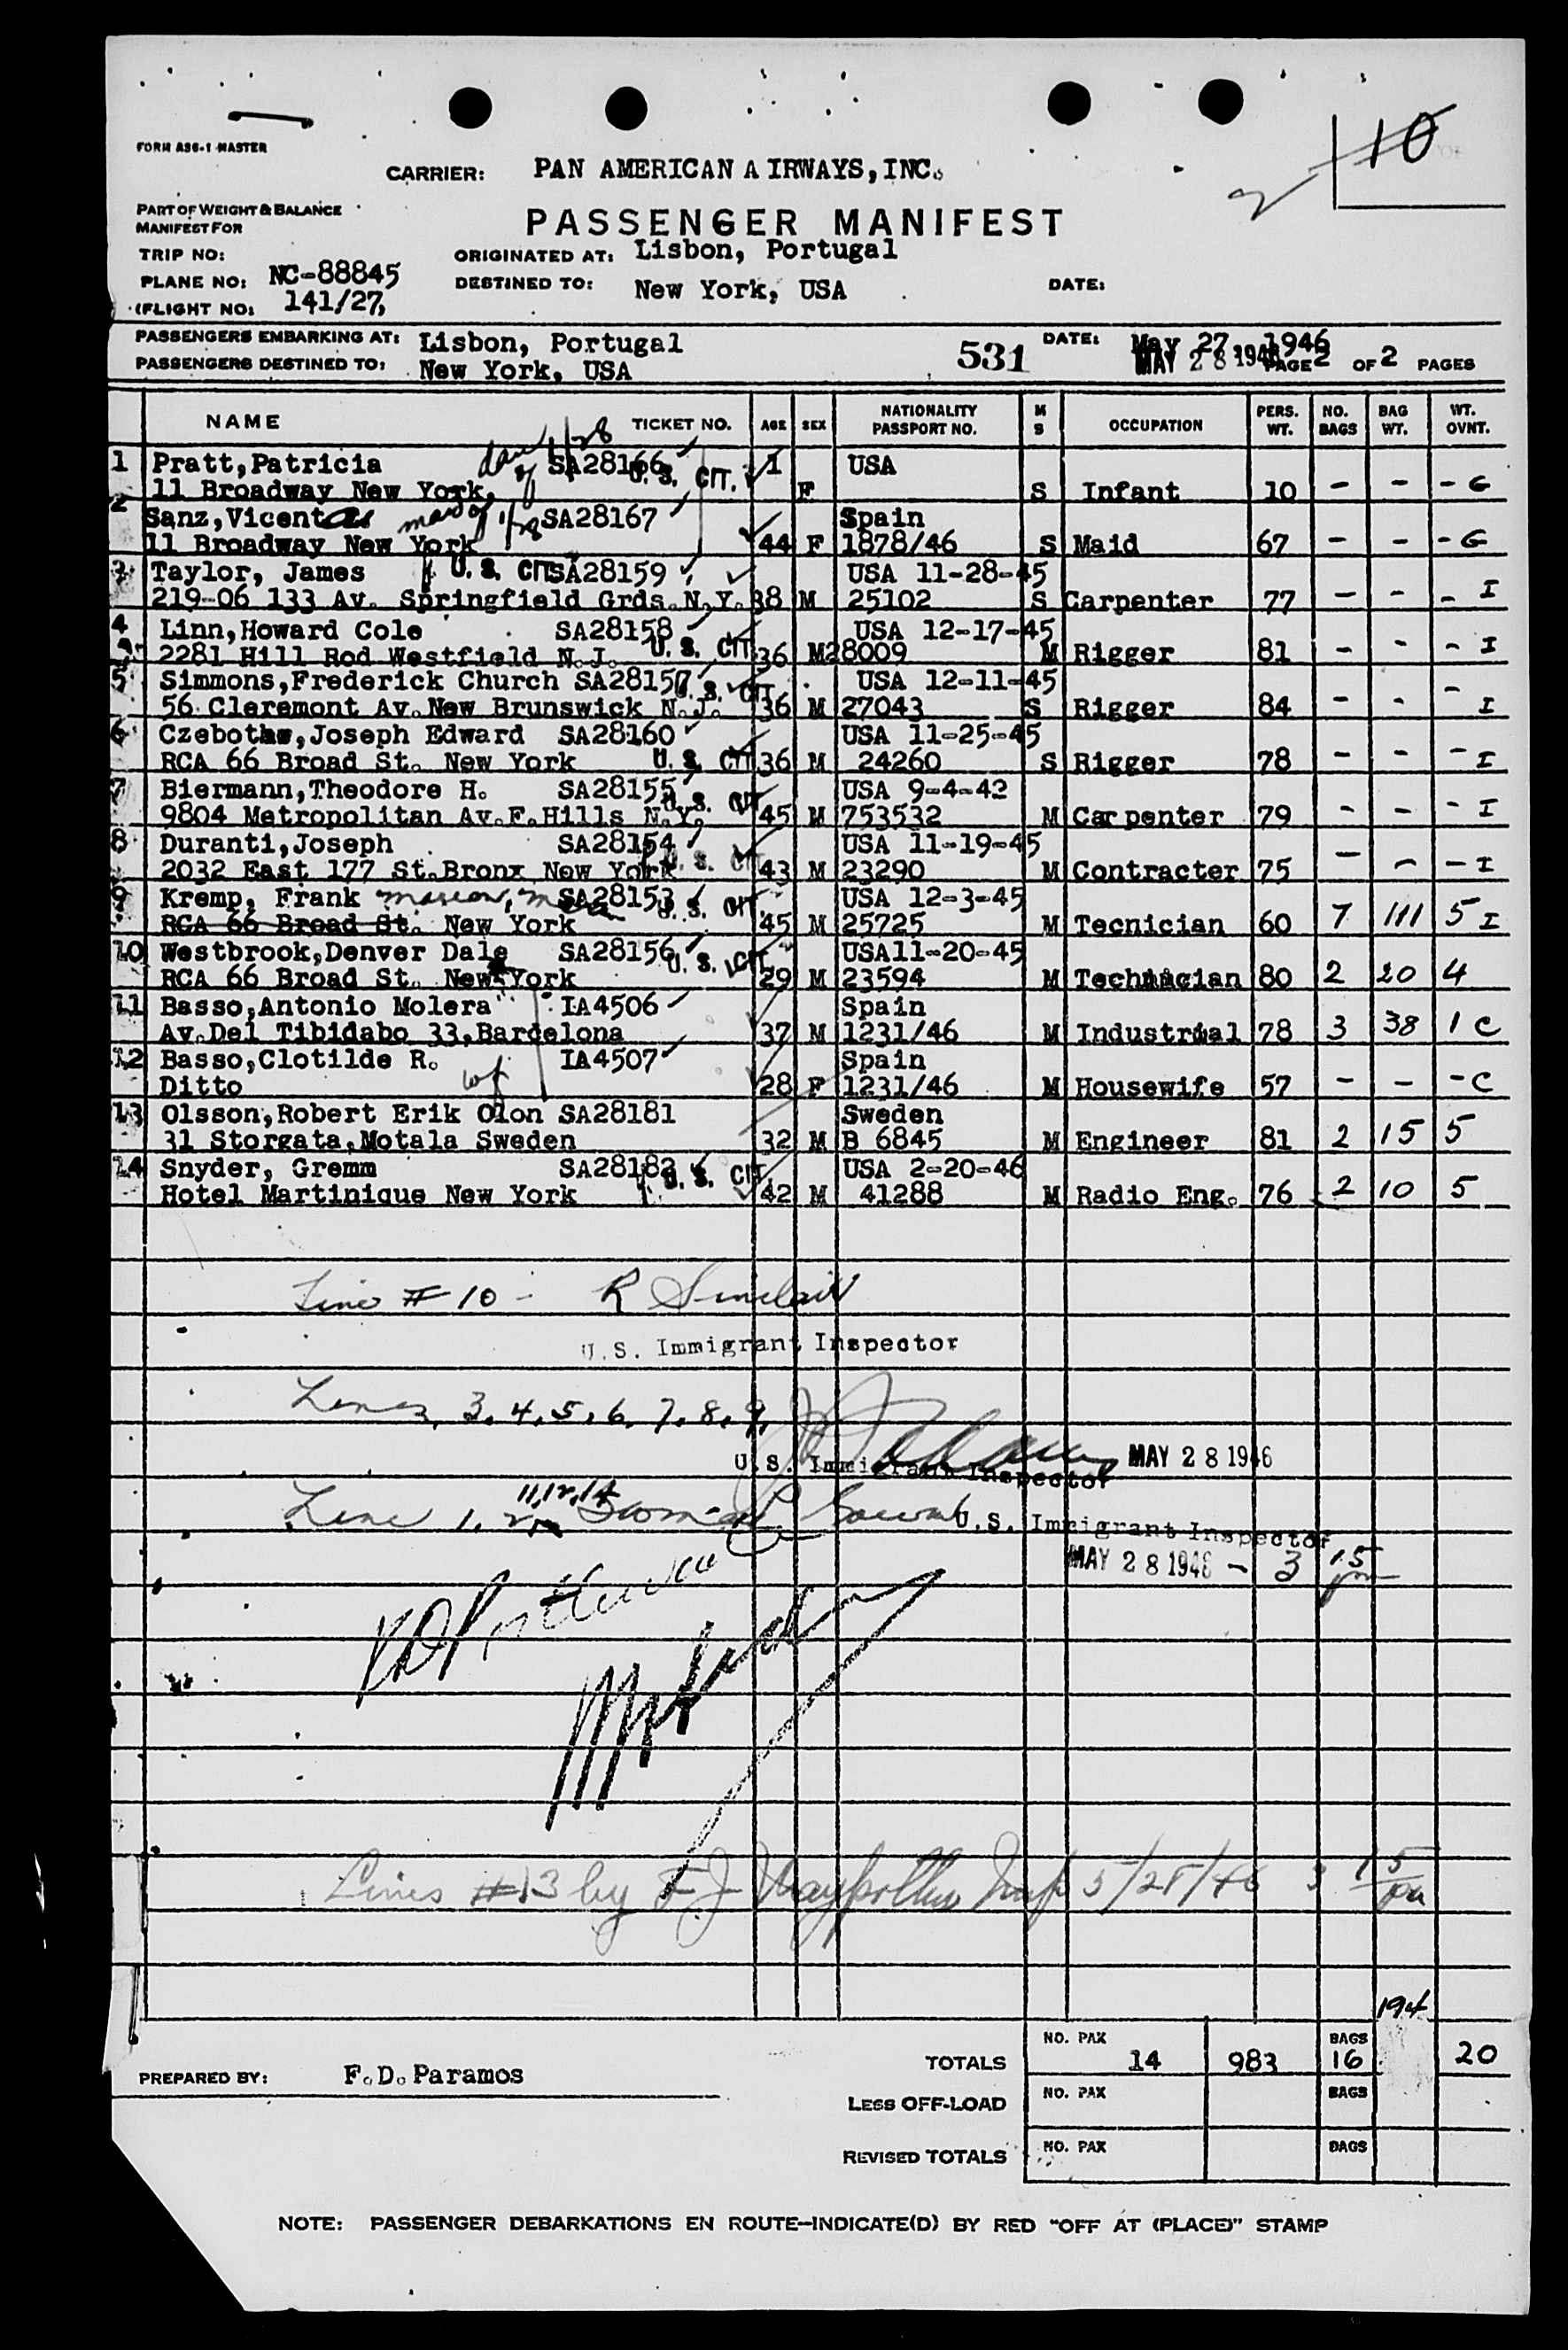 10
FORM A36-1 MASTER
CARRIER: PAN AMERICAN A IRWAYS, INC.
PART OF WEIGHT & BALANCE
MANIFEST FOR
PASSENGER MANIFEST
TRIP NO:
ORIGINATED AT: Lisbon, Portugal
PLANE NO: NC-88845
DESTINED TO: New York, USA DATE:
(FLIGHT NO: 141/27,
PASSENGERS EMBARKING AT: Lisbon, Portugal 531 DATE: May 27, 1946
MAY 28 1946 PAGE 2 OF 2 PAGES
PASSENGERS DESTINED TO: New York, USA
NAME TICKET NO. AGE SEX NATIONALITY PASSPORT NO. M S OCCUPATION PERS. WT. NO. BAGS BAG WT. WT. OVNT.
1 Pratt,Patricia dau of 1/28 SA28166 U. S. CIT. 1 USA
11 Broadway New York, F S Infant 10 - - - G
2 Sanz,Vicenta maid of 1/28 SA28167 Spain
11 Broadway New York 44 F 1878/46 S Maid 67 - - - G
3 Taylor, James U. S. CIT SA28159 USA 11-28-45
219-06 133 Av. Springfield Grds.N.Y. 38 M 25102 S Carpenter 77 - - - I
4 Linn,Howard Cole SA28158 U. S. CIT USA 12-17-45
2281 Hill Rod Westfield N.J. 36 M 28009 M Rigger 81 - - - I
5 Simmons,Frederick Church SA28157 U. S. CIT USA 12-11-45
56 Claremont Av.New Brunswick N.J. 36 M 27043 S Rigger 84 - - - I
6 Czebothe,Joseph Edward SA28160 USA 11-25-45
RCA 66 Broad St. New York U. S. CIT 36 M 24260 S Rigger 78 - - - I
7 Biermann,Theodore H. SA28155 U. S. CIT USA 9-4-42
9804 Metropolitan Av.F.Hills N.Y. 45 M 753532 M Carpenter 79 - - - I
8 Duranti,Joseph SA28154 USA 11-19-45
2032 East 177 St.Bronx New York U. S. CIT 43 M 23290 M Contracter 75 - - - I
9 Kremp, Frank SA28153 U. S. CIT USA 12-3-45
RCA 66 Broad St. New York 45 M 25725 M Tecnician 60 7 111 5 I
10 Westbrook,Denver Dale SA28156 U. S. CIT USA11-20-45
RCA 66 Broad St. New York 29 M 23594 M Technician 80 2 20 4
11 Basso,Antonio Molera IA4506 Spain
Av.Del Tibidabo 33,Barcelona 37 M 1231/46 M Industrial 78 3 38 1 C
12 Basso,Clotilde R. IA4507 Spain
Ditto wf 28 F 1231/46 M Housewife 57 - - - C
13 Olsson,Robert Erik Olon SA28181 Sweden
31 Storgata,Motala Sweden 32 M B 6845 M Engineer 81 2 15 5
14 Snyder, Gremm SA28182 U. S. CIT USA 2-20-46
Hotel Martinique New York 42 M 41288 M Radio Eng. 76 2 10 5
Line # 10 - R Sinclair
U.S. Immigrant Inspector
Lines 3, 4, 5, 6, 7, 8, 9,
U.S. Immigrant Inspector MAY 28 1946
11, 12, 14
Line 1, 2
U.S. Immigrant Inspector
MAY 28 1946 - 3 15 pm
Lines #13 by F J 5/28/46 3 15 pm
194
TOTALS NO. PAX 14 983 BAGS 16 20
PREPARED BY: F.D.Paramos
LESS OFF-LOAD NO. PAX BAGS
REVISED TOTALS NO. PAX BAGS
NOTE: PASSENGER DEBARKATIONS EN ROUTE—INDICATE(D) BY RED "OFF AT (PLACE)" STAMP